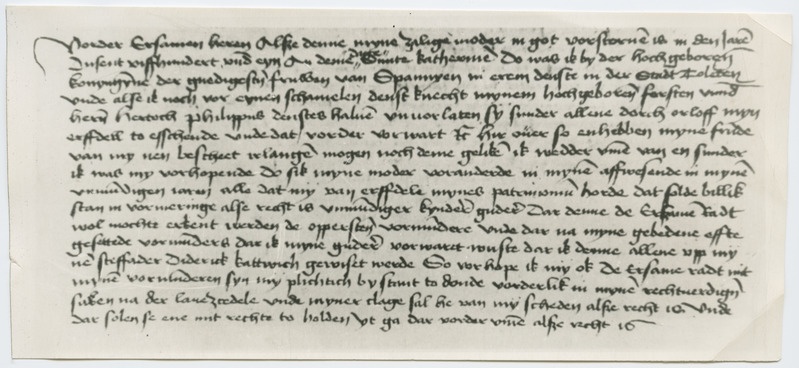 Vorder Ersamen heren Alse denne myne zilige moder in got vorstoruē is in den Jarē
Dusent viffhundert vnd eyn An deme dage Sunte katherinē Do was ik by der hochgeborē
konyngynne der gnedigestē fruwen van Spannyen in erem denste in der Stadt Toleden
vnde alse ik noch vor eynen schamelen denst knecht mynem hochgeborē forsten vnnd
herē hertoch philippus denstes haluē vnuorlaten sy sunder allene dorch orloff myn
erffdeil to esschende vnde dat vorder vorwart hir ouer so enhebben myne frunde
van my nen bescheet irlangē mogen noch deme geliken ik wedder vmē van en sunder
ik was my vorhopende do sik myne moder voranderde in mynē affwesende in mynē
vnmundigen iaren alle dat my van erffdele mynes patrimoniū borde dat solde billik
stan in vorweringe alse recht is vnmūdiger kynder guder Dar denne de Ersame Radt
wol mochte erkent werden de oppersten vormundere vnde dar na myne gebedene effte
gesettede vormūders dar ik myne guder vorwaret wuste dar ik denne allene vpp my
nē steffader Diderik kattwich gewiset werde So vorhope ik my ok de Ersame radt mit
mynē vormunderen syn my plichtich by stant to donde vorderlik in mynē rechtuerdigē
saken na der lauezedele vnde myner clage sal he van my scheden alse recht is vnde
dar solen se ene mit rechte to holden vt ga dar vorder vmē alse recht is